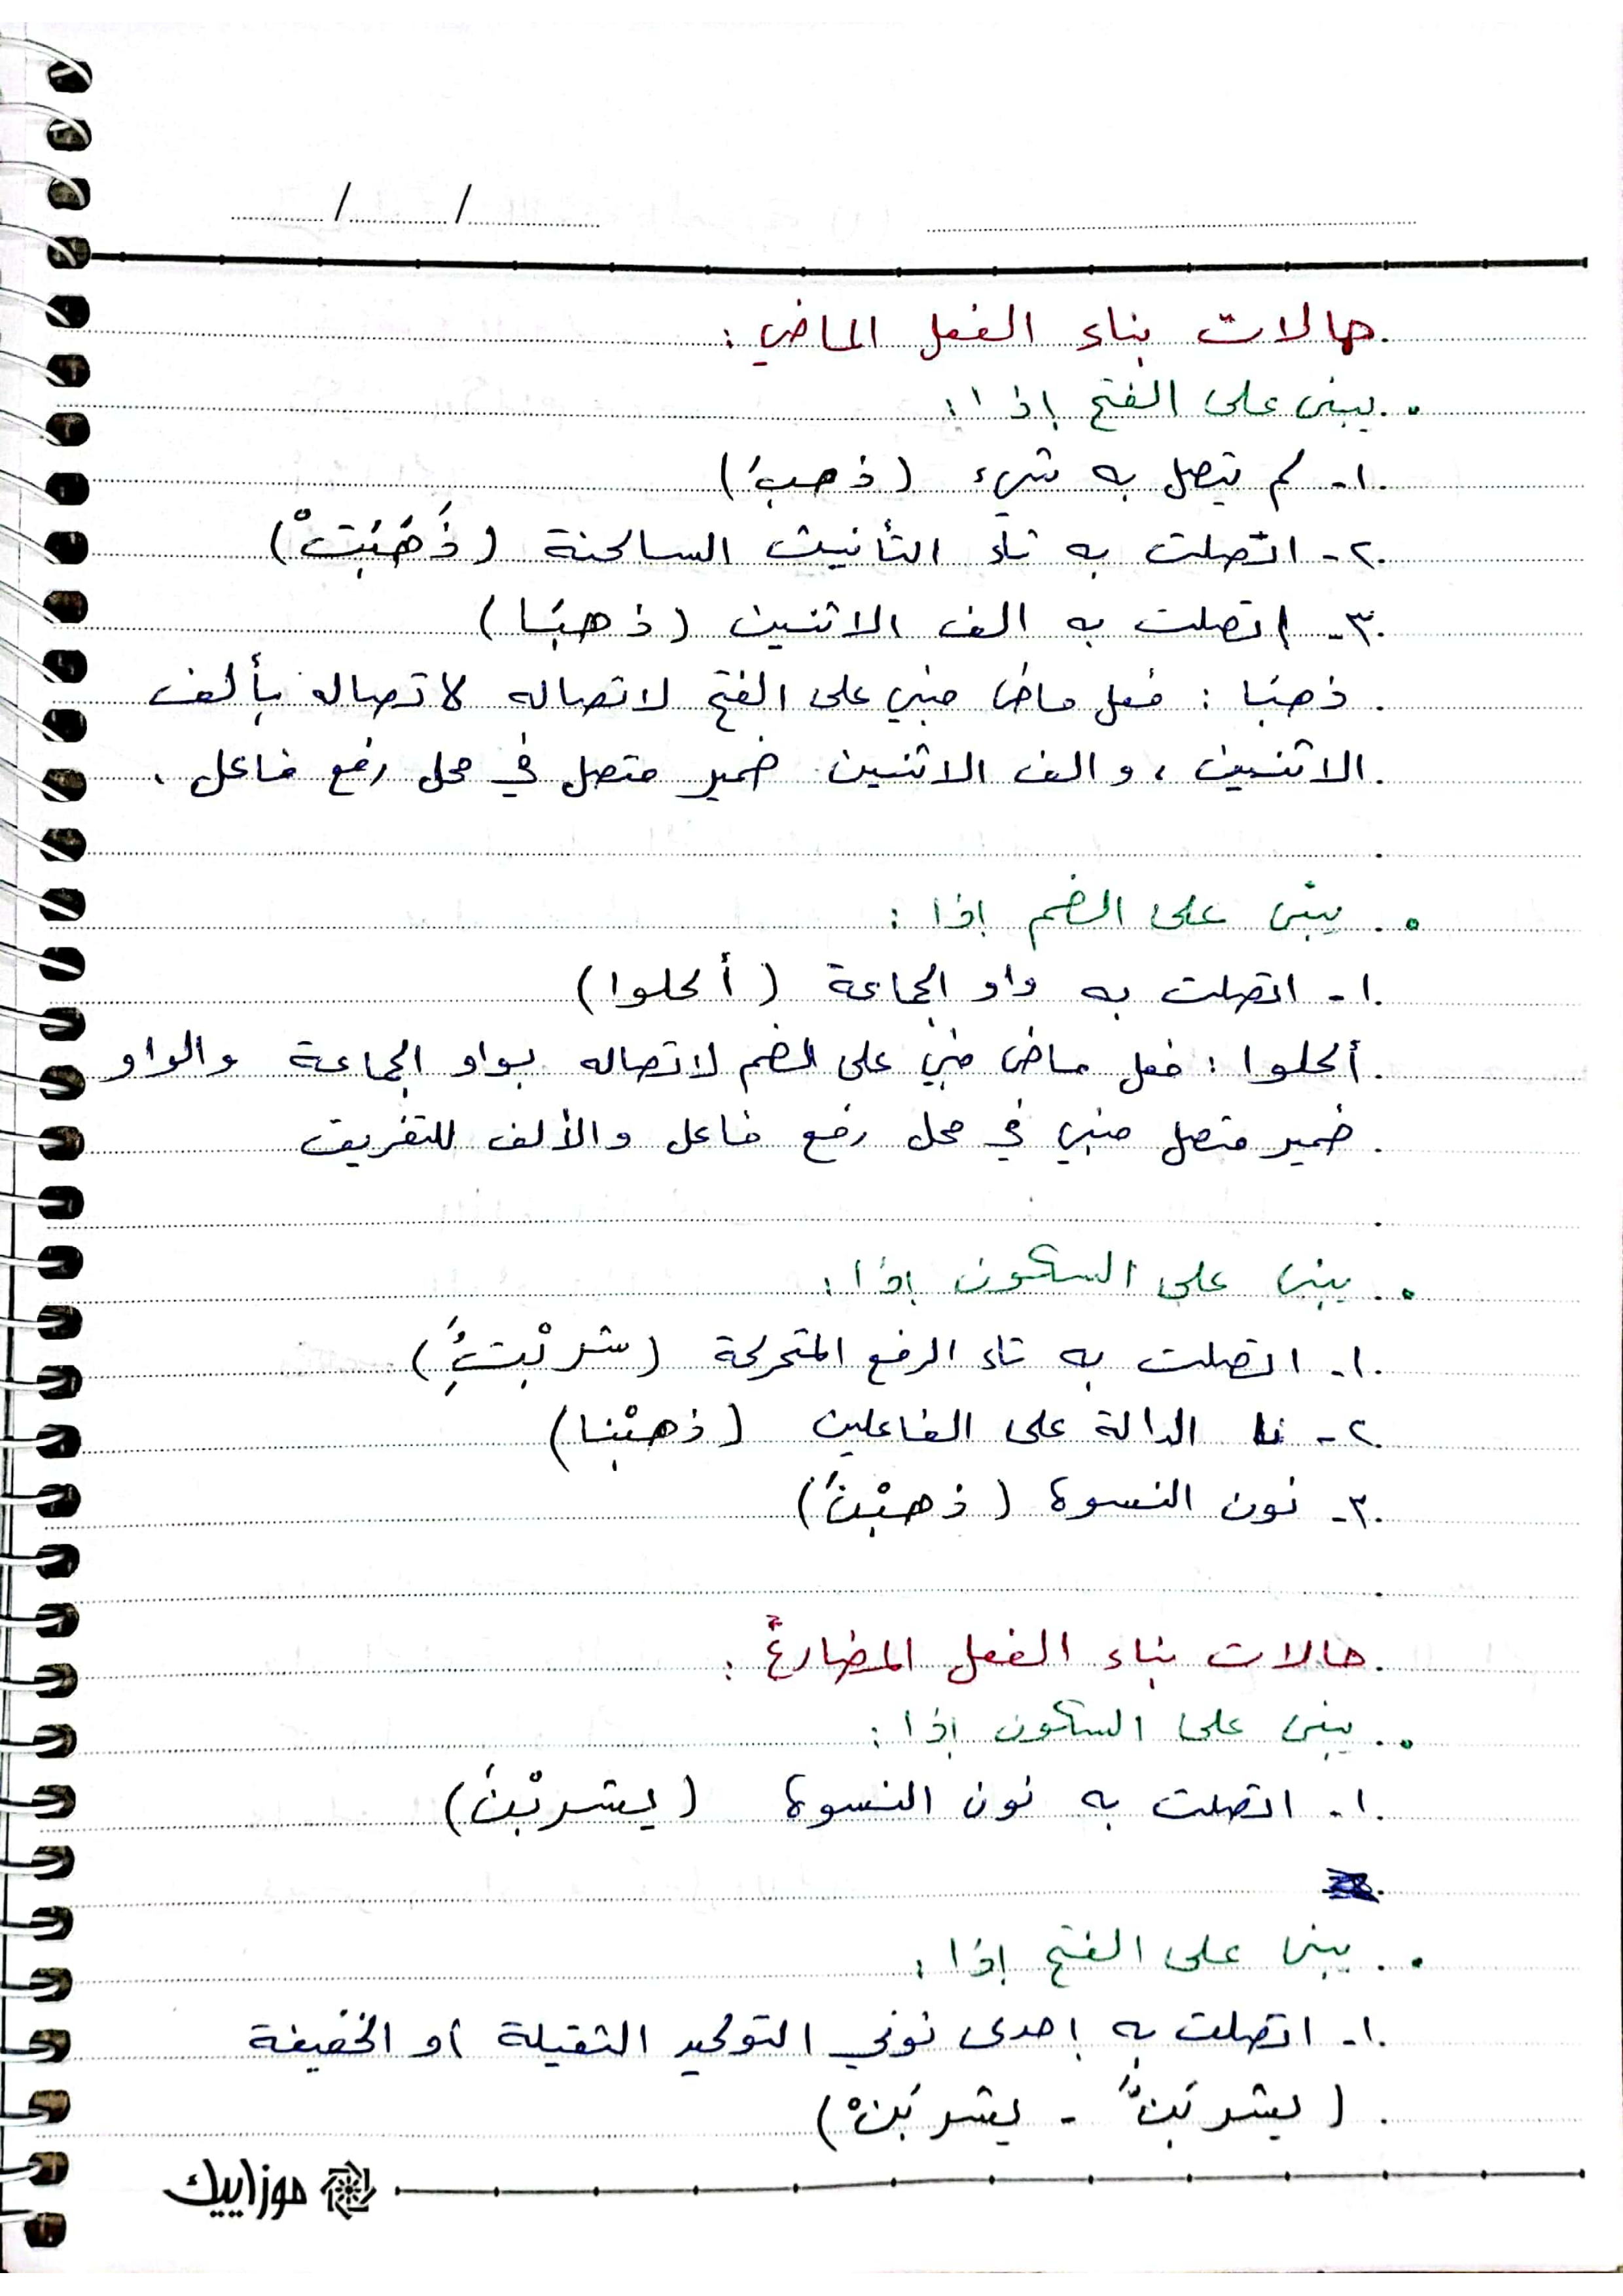 / /
حالات بناء الفعل الماضي :
• يبنى على الفتح إذا :
١- لم يتصل به شيء (ذهبَ)
٢- اتصلت به تاء التأنيث الساكنة (ذَهَبَتْ)
٣- اتصلت به الف الاثنين (ذهبَا)
ذهبَا : فعل ماض مبني على الفتح لاتصاله لاتصاله بألف
الاثنين ، والف الاثنين ضمير متصل في محل رفع فاعل .
• يبنى على الضم إذا :
١- اتصلت به واو الجماعة (أكلوا)
أكلوا : فعل ماض مبني على الضم لاتصاله بواو الجماعة والواو
ضمير متصل مبني في محل رفع فاعل والألف للتفريق
• يبنى على السكون إذا :
١- اتصلت به تاء الرفع المتحركة (شربْتَُِ)
٢- نا الدالة على الفاعلين (ذهبْنا)
٣- نون النسوة (ذهبْنَ)
حالات بناء الفعل المضارع :
• يبنى على السكون إذا :
١- اتصلت به نون النسوة (يشربْنَ)
• يبنى على الفتح إذا :
١- اتصلت به إحدى نوني التوكيد الثقيلة أو الخفيفة
(يشربَنَّ - يشربَنْ)
موزاييك